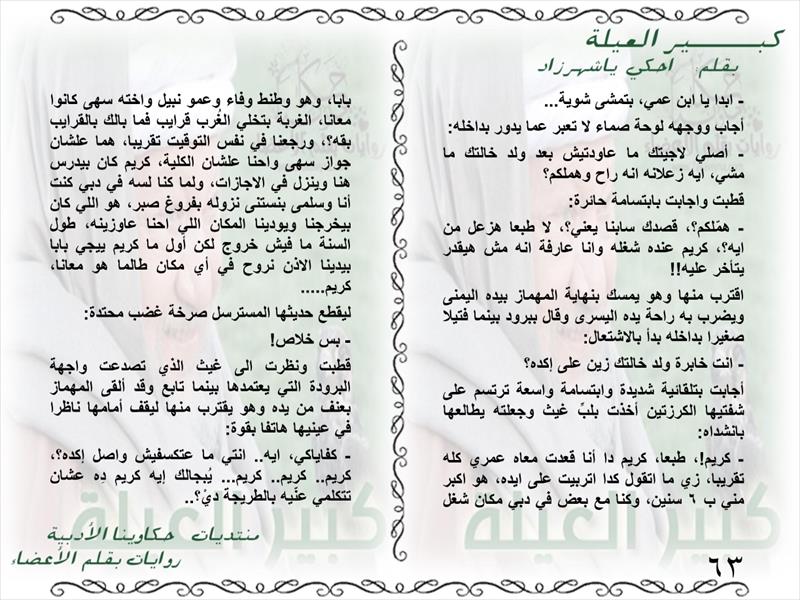 كبـــــــير العيلة
بقلم احكي ياشهرزاد
- ابدا يا ابن عمي، بتمشى شوية...
أجاب ووجهه لوحة صماء لا تعبر عما يدور بداخله:
- أصلي لاجيتك ما عاودتيش بعد ولد خالتك ما
مشي، ايه زعلانه انه راح وهملكم؟
قطبت واجابت بابتسامة حائرة:
- همّلكم؟، قصدك سابنا يعني؟، لا طبعا هزعل من
ايه؟، كريم عنده شغله وانا عارفة انه مش هيقدر
يتأخر عليه!!
اقترب منها وهو يمسك بنهاية المهماز بيده اليمنى
ويضرب به راحة يده اليسرى وقال ببرود بينما فتيلا
صغيرا بداخله بدأ بالاشتعال:
- إنت خابرة ولد خالتك زين على إكده؟
أجابت بتلقائية شديدة وابتسامة واسعة ترتسم على
شفتيها الكرزتين أخذت بلبّ غيث وجعلته يطالعها
بانشداه:
- كريم!، طبعا، كريم دا أنا قعدت معاه عمري كله
تقريبا، زي ما اتقول كدا اتربيت على ايده، هو اكبر
مني ب ٦ سنين، وكنا مع بعض في دبي مكان شغل
بابا، وهو وطنط وفاء وعمو نبيل واخته سهى كانوا
معانا، الغربة بتخلي الغُرب قرايب فما بالك بالقرايب
بقه؟، ورجعنا في نفس التوقيت تقريبا، هما علشان
جواز سهى واحنا علشان الكلية، كريم كان بيدرس
هنا وينزل في الاجازات، ولما كنا لسه في دبي كنت
أنا وسلمى بنستنى نزوله بفروغ صبر، هو اللي كان
بيخرجنا ويودينا المكان اللي احنا عاوزينه، طول
السنة ما فيش خروج لكن أول ما كريم ييجي بابا
بيدينا الاذن نروح في أي مكان طالما هو معانا،
كريم.....
ليقطع حديثها المسترسل صرخة غضب محتدة:
- بس خلاص!
قطبت ونظرت الى غيث الذي تصدعت واجهة
البرودة التي يعتمدها بينما تابع وقد ألقى المهماز
بعنف من يده وهو يقترب منها ليقف أمامها ناظرا
في عينيها هاتفا بقوة:
- كفاياكي، ايه.. انتي ما عتكسفيش واصل إكده؟،
كريم.. كريم.. كريم... يُبجالك إيه كريم دِه عشان
تتكلمي عنّيه بالطريجة ديْ؟..
كبير العيلة
كبير العيلة
منتديات حكاوينا الأدبية
روايات بقلم الأعضاء
٦٣